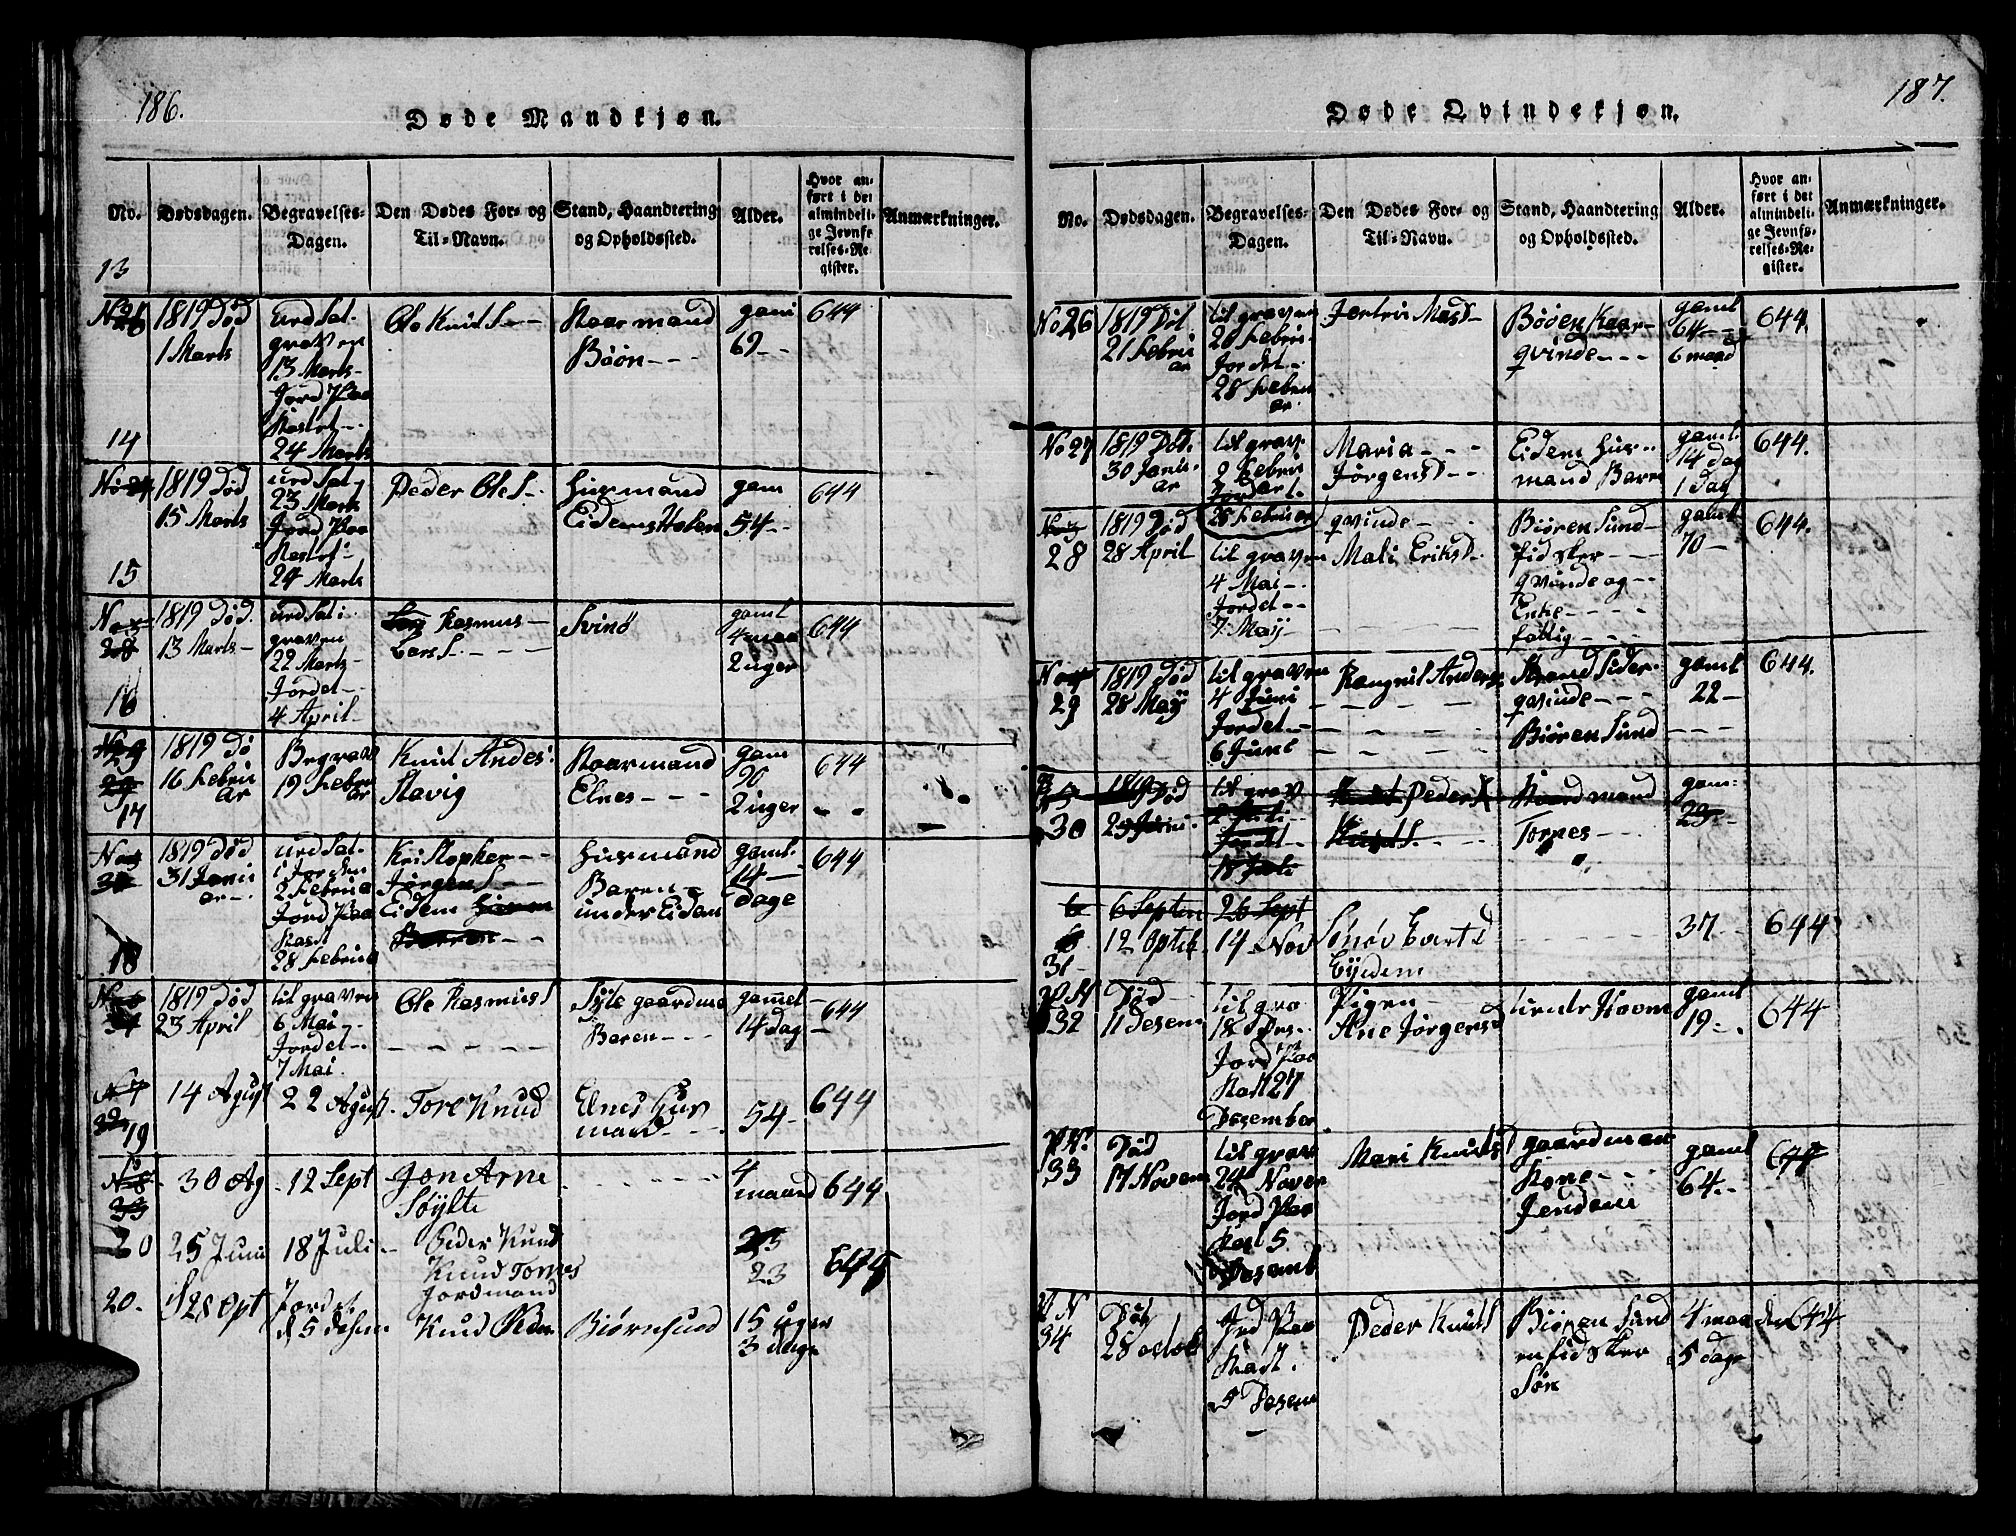 186.
Døde Mandkjøn.
No.
Dødsdagen.
Begravelses-
Dagen.
Den Dødes For- og
Til-Navn.
Stand, Haandtering
og Opholdssted.
Alder.
Hvor an-
ført i det
almindeli-
ge Jevnfø-
relses-Re-
gister.
Anmærkninger.
13
1819 Død
1 Marts
urdsat.
graven
13 Marts-
Jord Paa
Kastet-
24 Marts
Ole Knuts--
Noarmand
Bøøn---
69--
644
14
1819 Død
15 Marts
urdsat,
23 Marts
Jord Paa
Kastet-
24 Marts
Peder Oles-
Husmand
Eidemsholen
gam
54--
644
15
1819 Død.
13 Marts-
urdsat i
graven
22 Marts-
Jordet-
4 April-
Rasmus-
Lars---
Svinø
gaml
4 maa
2 uger
644
16
1819 Dø
16 Februar
Begraav
19 Februar
Knut Andes:
Stavig
Noarmand
Elnes---
gam
90
2 uger
644
17
1819 Død
31 Januar-
urdsat.
i Jorden
2 Februa
Jord Paa
Kast
28 Februa
Kristopher--
Jørgens--
Eidem
Husmand
Baren-
under Eidem
gaml.
14-
dage
644
18
1819 Død
23 April
til graven
6 Mai-
Jordet-
7 Mai.
Ole Rasmus
Sylte gaardma
Baren---
gammel-
14 dag-
644
14 Agust
22 Agust.
Tore Knud
Elnes Hus
mand--
54-
644
19
30 Ag
12 Sept
Jon Arne
Søylte
4
maand
644
20
25 Juni
18 Juli-
Peder Knud
Knud Tornes
Jordmand
23
645
20.
d 28 Sept
Jordet
d 5 desem
Knud
Biørnsund
15 uger
3 dage
187.
Døde Qvindekjøn.
No.
Dødsdagen.
Begravelses-
Dagen.
Den Dødes For- og
Til-Navn.
Stand, Haandtering
og Opholdssted.
Alder.
Hvor an-
ført i det
almindeli-
ge Jevnfø-
relses-Re-
gister.
Anmærkninger.
No 26
1819 Død
21 Februar
til graven
26 Febru-
Jordet-
28 Februar
Masd-
Bøøen Kaar-
qvinde---
gaml
64--
6 maad
644.
No 27
1819 Død.
30 Januar
til grav.
2 Februar
Jordet.
28 Februar
Maria---
Jørgensd--
Eidem Hus-
mand Barn
gaml.
14 dag
1 dag
644.
28
1819 Død
28 April
til graven
4 Mai-
Jordet--
7 Maij
qvinde---
Mali Eriksd-
Biørensund-
fidsker---
qvinde og--
Enke----
fattig---
gaml
70-
644.
29
1819 Død
28 Maij
til graven
4 Juni
Jordet-
6 Juni
Rangnil Anders
Strandsider-
qvinde---
Biørensund
gaml
22-
644.
30
1819 Død
29 Juni
til grav
2 Juli-
Jordet-
18 Juli
Peder
Knuds
Noardmand
Tornes---
gam:
23-
6 Septem
26 Sept
31
12 Optob
14 Nov
Sønøv Evartsd
Eijdem
37-
644
32
Død
11 Desem
til gra
18 Des-
Jord Paa
Kast 27
Desember
Pigen-
Ane Jørgensd
under Hovne
gaml
19--
644
33
Død
17 Novem
til grav
24 Novem
Jord Paa
Kast 5.
Desemb
Mari Knuts
gaardman
Kone---
gaml
64--
644
34
Død
28 octob
Jrd Paa
Kast.
5 Desem
Peder Knuts
Biørensund
en fidsker
Søn
4 maader
5 dage
644